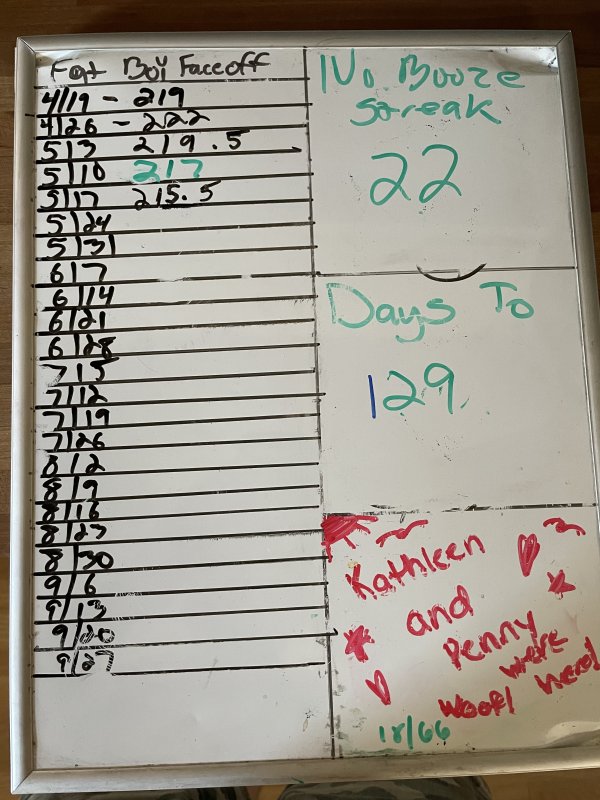 Fat Boy Faceoff
4/19 - 219
4/26 - 222
5/3 219.5
5/10 217
5/17 215.5
5/24
5/31
6/7
6/14
6/21
6/28
7/5
7/12
7/19
7/26
8/2
8/9
8/16
8/23
8/30
9/6
9/13
9/20
9/27
No Booze
Streak
22
Days To
129
Kathleen
and
Penny
were
Woof! here!
18/66